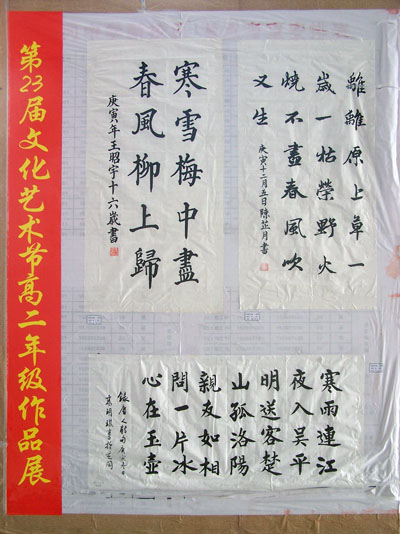 第23届文化艺术节高二年级作品展
寒雪梅中盡
春風柳上歸
庚寅年王昭宇十六歲書
離離原上草一
歲一枯榮野火
燒不盡春風吹
又生
庚寅十二月五日陳芷月書
寒雨連江
夜入吴平
明送客楚
山孤洛陽
親友如相
問一片冰
心在玉壺
錄唐人